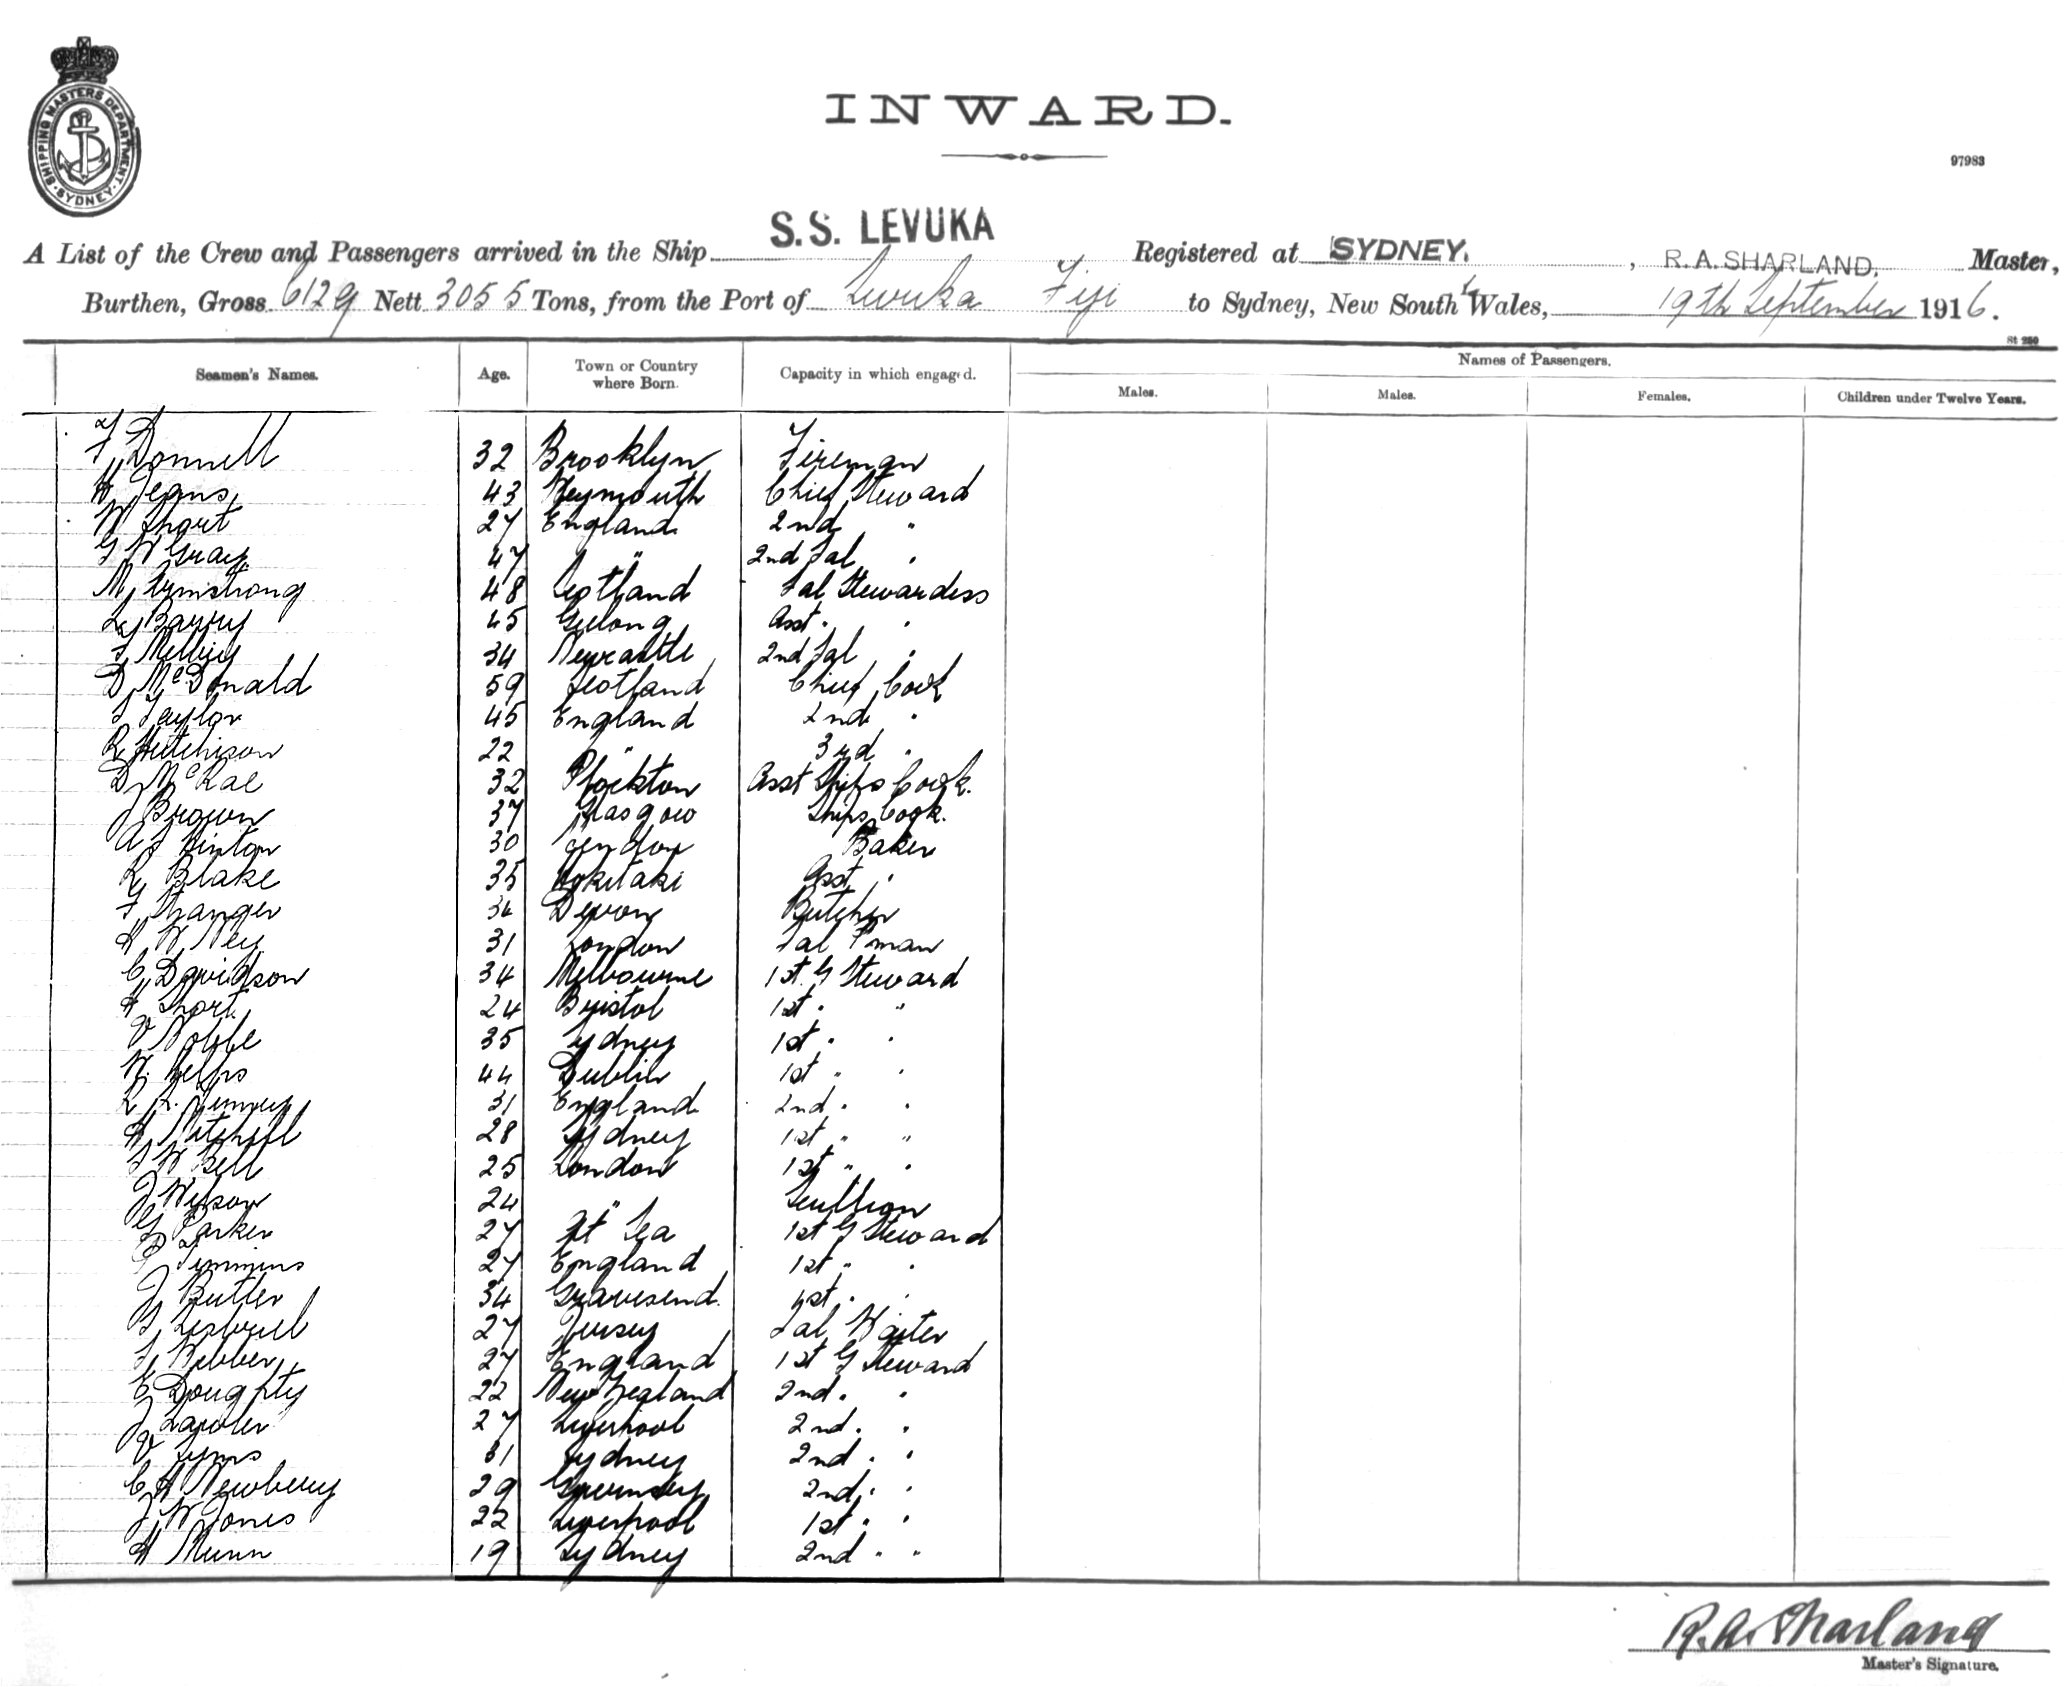 SHIPPING MASTERS DEPARTMENT
SYDNEY
INWARD.
97983
A List of the Crew and Passengers arrived in the Ship S.S. LEVUKA Registered at SYDNEY. , R.A. SHARLAND. Master,
Burthen, Gross 6129 Nett 3055 Tons, from the Port of Levuka Fiji to Sydney, New South Wales, 19th September 1916.
St 250
Seamen's Names. Age. Town or Country where Born. Capacity in which engaged. Names of Passengers.
Males. Males. Females. Children under Twelve Years.
F Donnell 32 Brooklyn Fireman
H Jeans 43 Weymouth Chief Steward
W Short 27 England 2nd "
G W Gray 47 " 2nd Sal "
M Armstrong 48 Scotland Sal Stewardess
L Barry 45 Geelong Asst. "
F 34 Newcastle 2nd Sal "
D McDonald 59 Scotland Chief Cook
S Taylor 45 England 2nd "
R Hutchison 22 " 3rd "
D McRae 32 Plockton Asst Ships Cook.
J Brown 37 Glasgow Ships Cook.
A S Hinton 30 London Baker
R Blake 35 Asst "
F Stanger 34 Devon Butcher
H W Ney 31 London Sal Pman
C Davidson 34 Melbourne 1st. G Steward
H Short 24 Bristol 1st " "
V Noble 35 Sydney 1st " "
W. 44 Dublin 1st " "
L L. 31 England 2nd " "
H Mitchell 28 Sydney 1st " "
S W Bell 25 London 1st " "
J Wilson 24 " Scullion
G Parker 27 At Sea 1st G Steward
P Timmins 27 England 1st " "
J Butler 34 Gravesend. 1st " "
G 27 Jersey Sal Waiter
S Webber 27 England 1st G Steward
C Doughty 22 New Zealand 2nd " "
J Lawler 27 Liverpool 2nd " "
V Syms 31 Sydney 2nd " "
C H Newberry 29 Guernsey 2nd " "
J W Jones 22 Liverpool 1st " "
H Munn 19 Sydney 2nd " "
R. A. Sharland
Master's Signature.